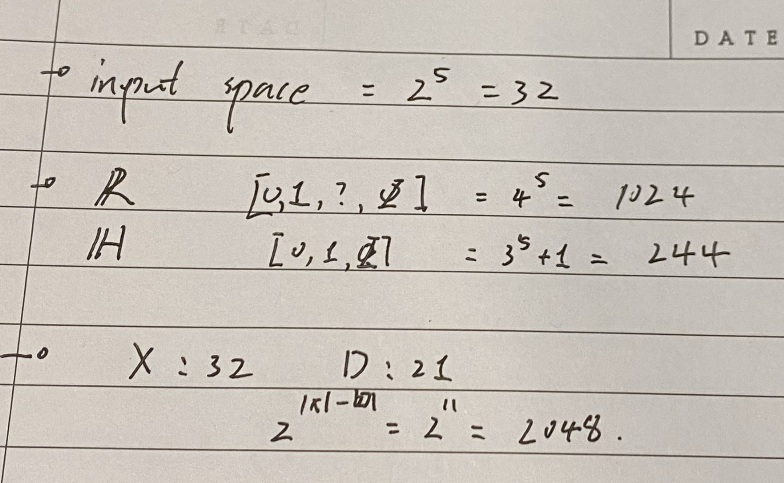 DATE
→ input space = 2⁵ = 32
→ ℝ [0,1,?,∅] = 4⁵ = 1024
ℍ [0,1,∅] = 3⁵+1 = 244
→ X : 32 D : 21
2^|X|-|D| = 2¹¹ = 2048.